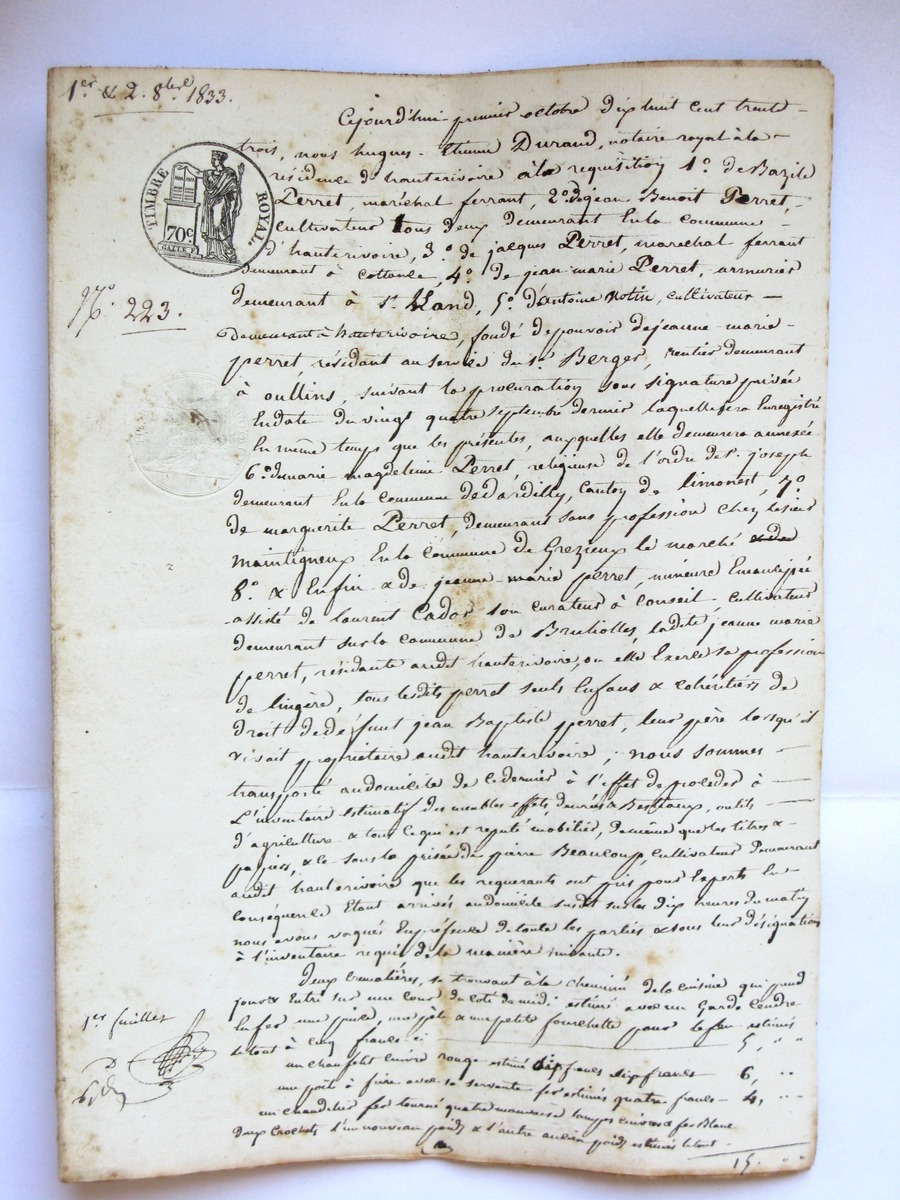 1er & 2. 8bre 1833.
Cejourd'hui premier octobre dix huit cent trente
trois, nous hugues-Etienne Durand, notaire royal à la
résidence d'hauterivoire à la requisition 1o. de Bazile
Perret, maréchal ferrant, 2o. de jean Benoit Perret,
cultivateur tous deux demeurant En la commune
d'hauterivoire, 3o. de jacques Perret, marechal ferrant
demeurant à Cottance, 4o. de jean-marie Perret, armurier
demeurant à St. , 5o. d'antoine notin, cultivateur
TIMBRE ROYAL.
70c
GALLE F.
No. 223.
Demeurant à hauterivoire, fondé de pouvoir de jeanne-marie
perret, résidant au service du sr. Berger, rentier demeurant
à oullins, suivant la procuration sous signature privée
En date du vingt quatre septembre dernier laquelle sera Enregistré
En même temps que les présentes, auxquelles elle demeurera annexée
6o. de marie magdeleine Perret, religieuse de l'ordre de St. joseph
demeurant En la commune de Dardilly, canton de limonest, 7o
de marguerite Perret, demeurant sans profession chez le sieur
En la Commune de Grezieux le marché
8o. & Enfin & de jeanne marie perret, mineure Emancipée
assisté de laurent Cador son curateur à conseil, cultivateur
demeurant sur la commune de Brulliolles, ladite jeanne marie
perret, résidante audit hauterivoire, ou elle Exerce sa profession
de lingère, tous lesdits perret seuls Enfans & cohéritiers de
droit de défunt jean Baptiste perret, leur père lorsqu'il
vivait propriétaire audit hauterivoire; nous sommes
transporté au domicile de ce dernier à l'effet de proceder à
L'inventaire estimatif des meubles effets, denrées & Bestiaux, outils
d'agriculture & tout ce qui est reputé mobilier, de même que les titres &
papiers, & ce sous la prisée de pierre Beaucoup, cultivateur Demeurant
audit hauterivoire que les requerants ont pris pour Experts En
conséquence Etant arrivés au domicile susdit sur les dix heures du matin
nous avons vaqués En présence de toute les parties & sous leur désignation
à l'inventaire requis de la manière suivante.
Deux cremaillères, se trouvant à la cheminé de la cuisine qui prend
jour & Entré sur une cour du coté du midi, estimé avec un Garde Cendre
En fer une pèle & une petite fourchette pour le feu estimés
le tout à cinq francs ci 5, " "
un chauffelit cuivre rouge estimé six francs 6, " "
une poële à frire avec sa servante fer estimés quatre francs 4, " "
un chandelier fer tourné quatre mauvaise lampes cuivre & fer Blanc
Deux Crochets l'un nouveau poids & l'autre ancien poids estimés le tout
15. " "
1er feuillet
D